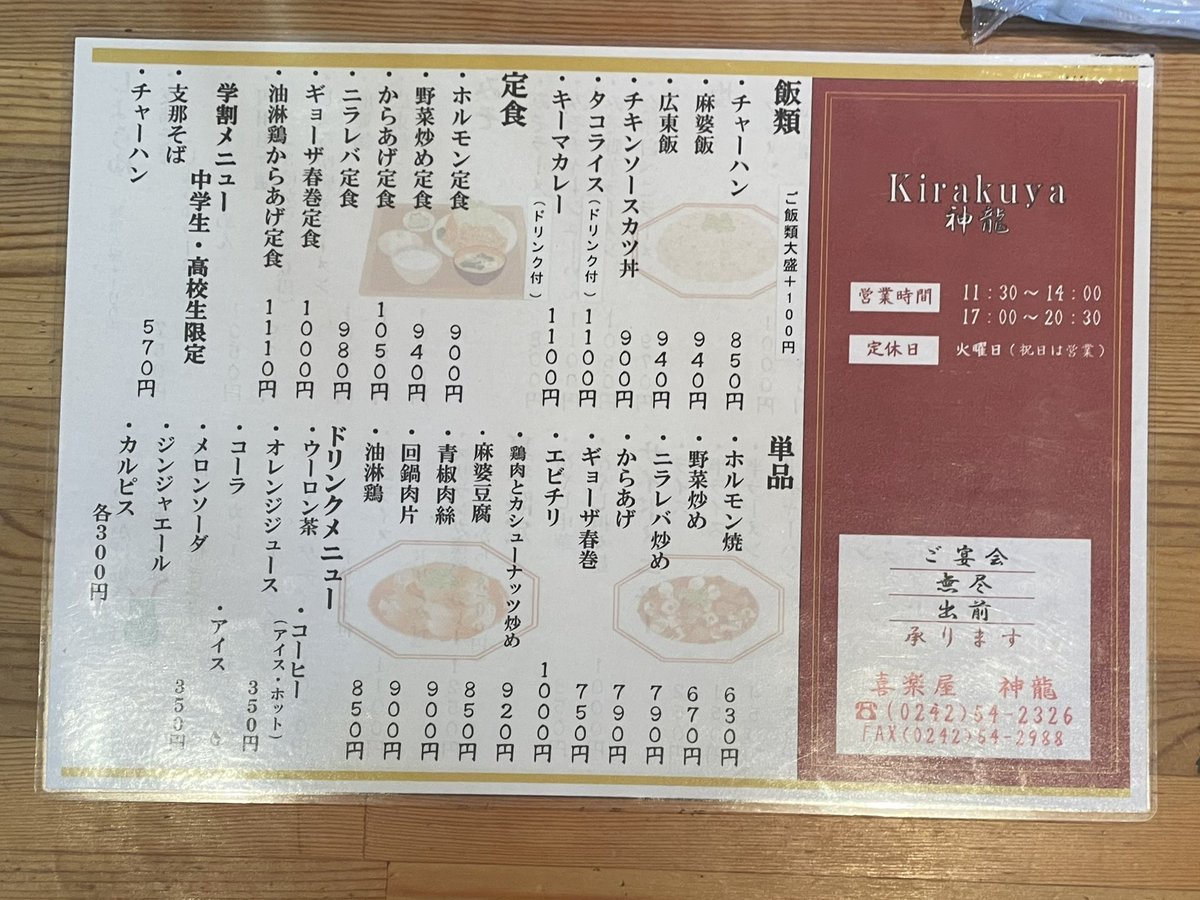 Kirakuya
神龍
営業時間
11:30～14:00
17:00～20:30
定休日
火曜日（祝日は営業）
ご宴会
無尽
出前
承ります
喜楽屋 神龍
☎(0242)54-2326
FAX(0242)54-2988
飯類
ご飯類大盛＋100円
・チャーハン 850円
・麻婆飯 940円
・広東飯 940円
・チキンソースカツ丼 900円
・タコライス（ドリンク付） 1100円
・キーマカレー（ドリンク付） 1100円
定食
・ホルモン定食 900円
・野菜炒め定食 940円
・からあげ定食 1050円
・ニラレバ定食 980円
・ギョーザ春巻定食 1000円
・油淋鶏からあげ定食 1110円
学割メニュー
中学生・高校生限定
・支那そば
・チャーハン 570円
単品
・ホルモン焼 630円
・野菜炒め 670円
・ニラレバ炒め 790円
・からあげ 790円
・ギョーザ春巻 750円
・エビチリ 1000円
・鶏肉とカシューナッツ炒め 920円
・麻婆豆腐 850円
・青椒肉絲 900円
・回鍋肉片 900円
・油淋鶏 850円
ドリンクメニュー
・ウーロン茶
・オレンジジュース
・コーラ
・メロンソーダ
・ジンジャエール
・カルピス
各300円
・コーヒー
（アイス・ホット）
350円
・アイス
350円